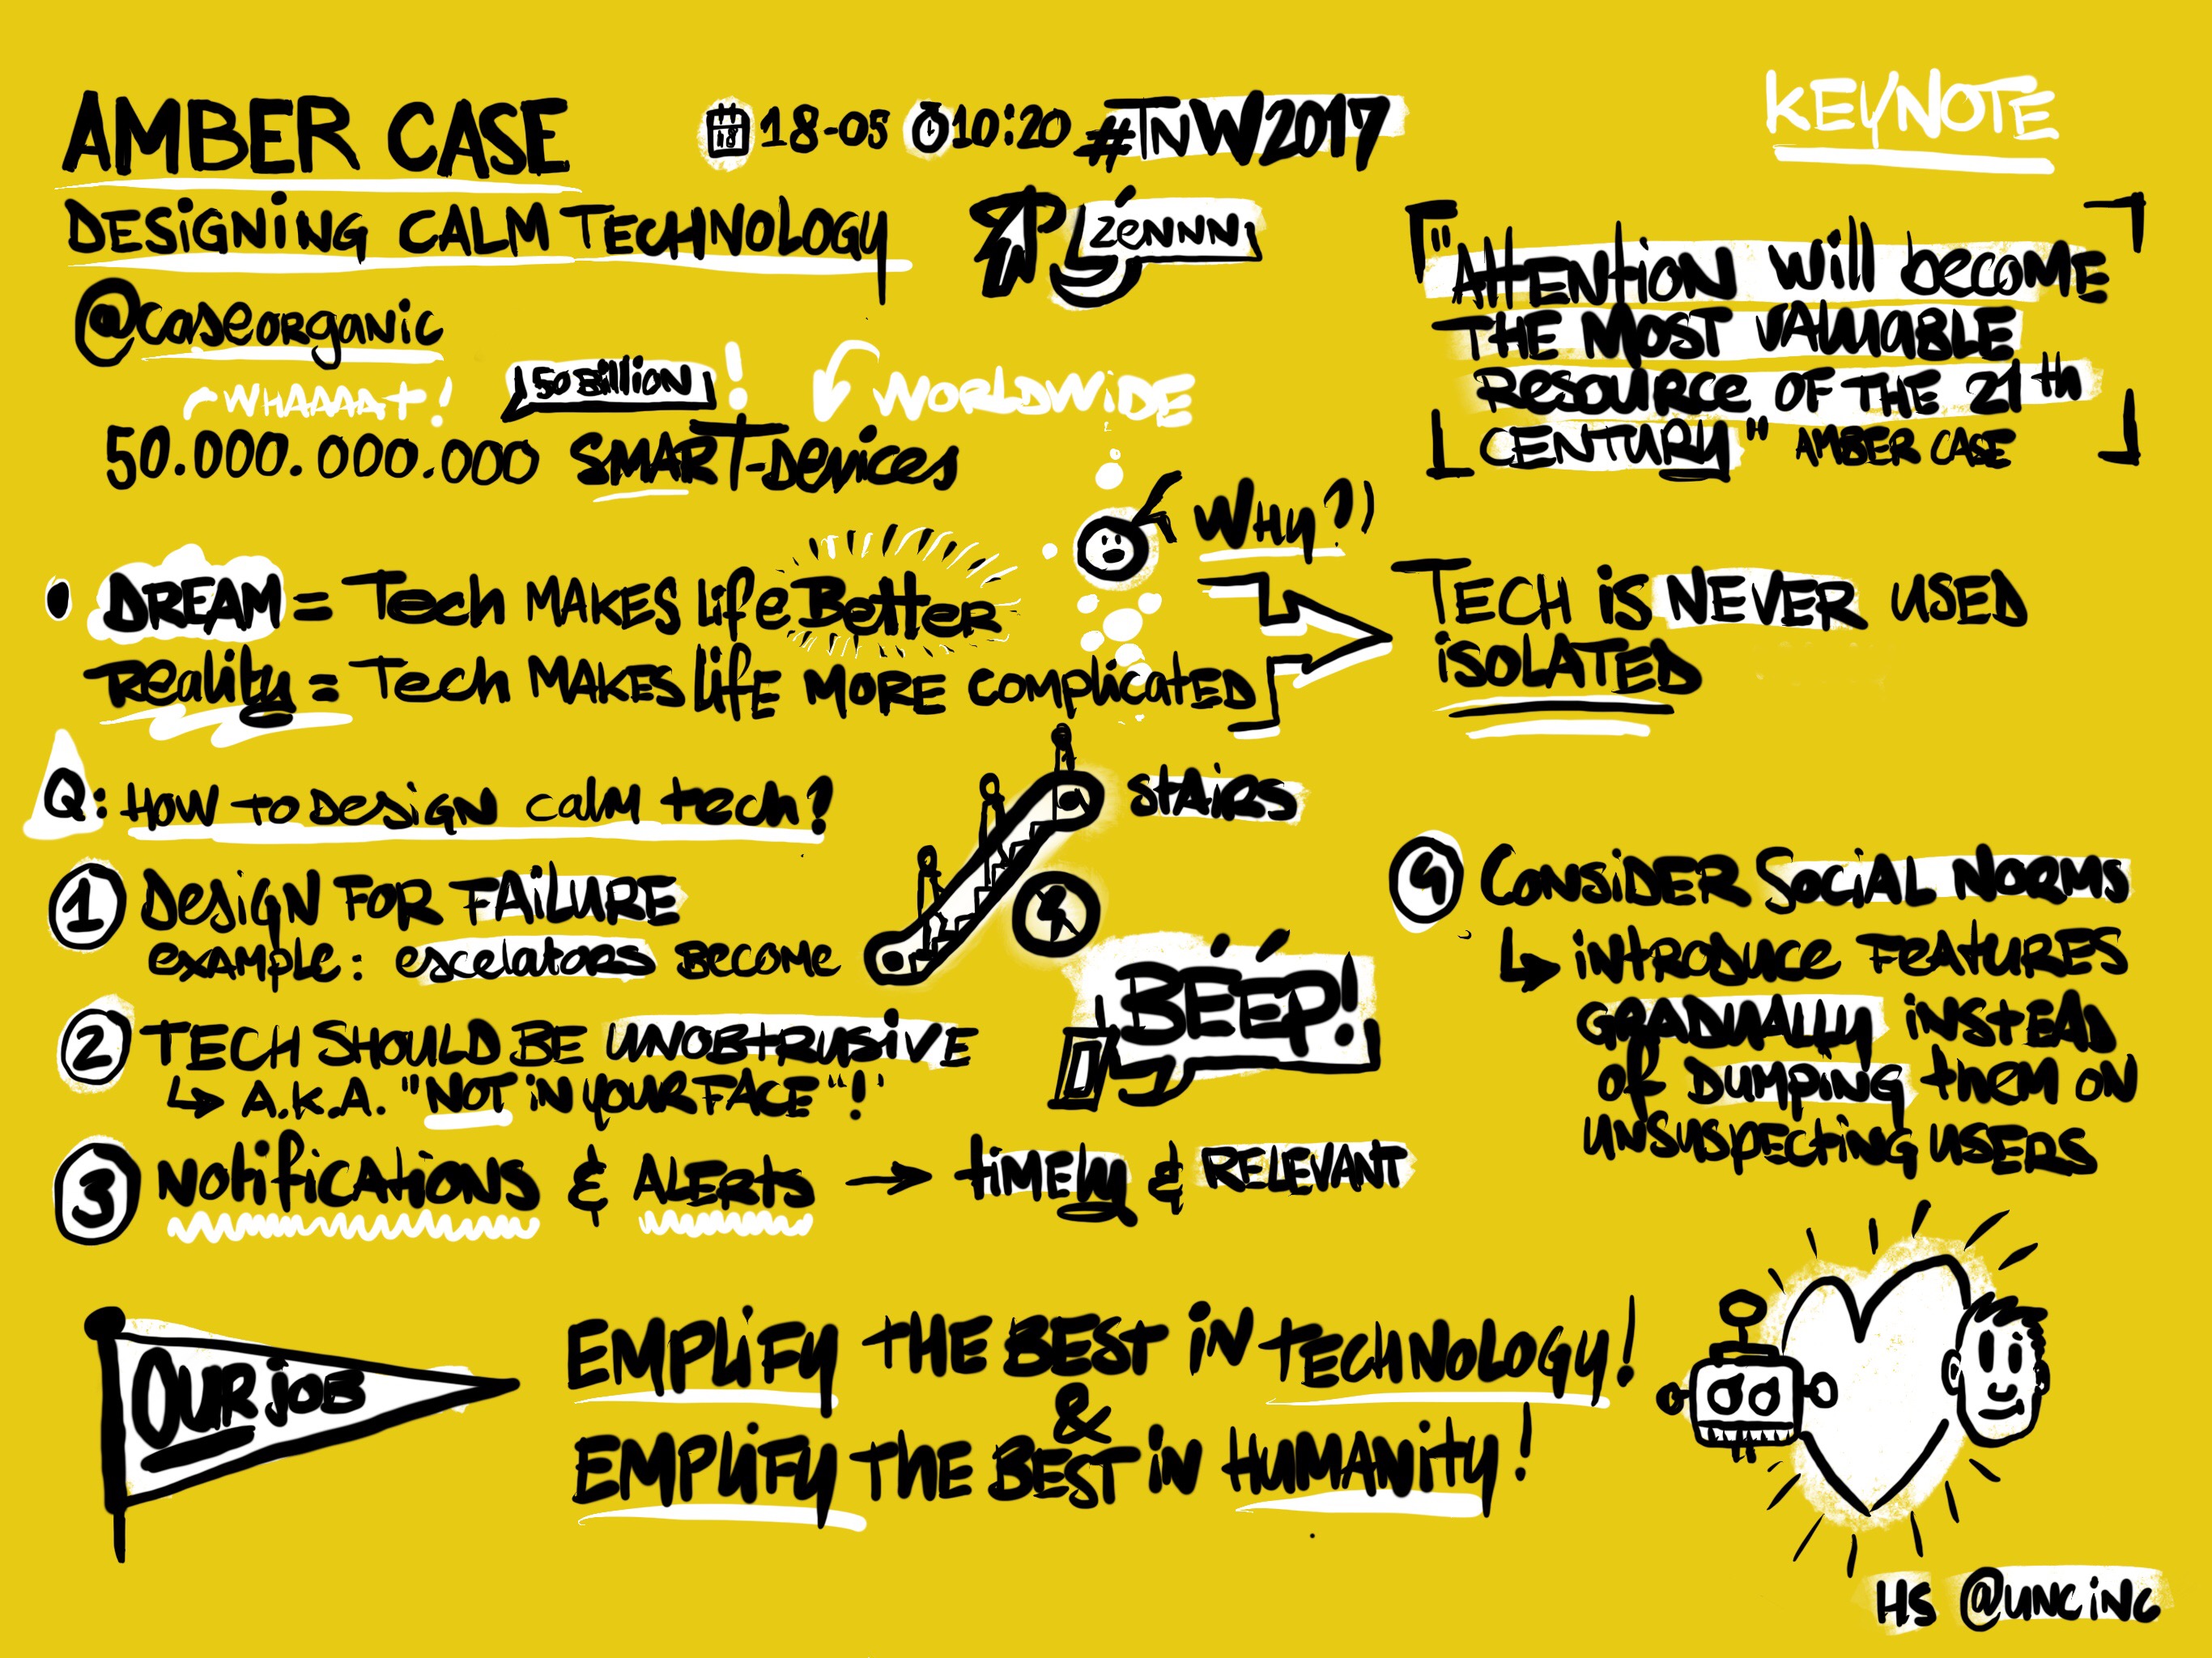 AMBER CASE
18-05 10:20 #TNW2017
KEYNOTE
DESIGNING CALM TECHNOLOGY
zénnn
@caseorganic
"Attention will become
the most valuable
resource of the 21th
century" Amber Case
WHAAAAT!
50 Billion!
WORLDWIDE
50.000.000.000 SMART-Devices
DREAM = Tech makes life Better
Reality = Tech makes life more complicated
Why?
Tech is NEVER used
isolated
Q: How to design calm tech?
1 Design for failure
example: escelators become
stairs
2 Tech should be unobtrusive
A.K.A. "NOT in your face"!
BÉÉP!
3 Notifications & Alerts → timely & relevant
4 Consider Social Norms
introduce features
gradually instead
of dumping them on
unsuspecting users
OUR JOB
EMPLIFY the best in technology!
&
EMPLIFY the best in humanity!
HS @UNCINC